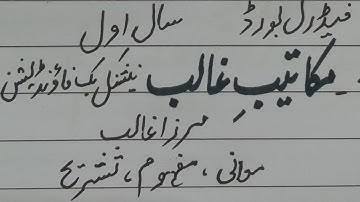 فیڈرل بورڈ سال اول
مکاتیبِ غالب نیشنل بک فاؤنڈیشن
مرزا غالب
معانی، مفہوم، تشریح